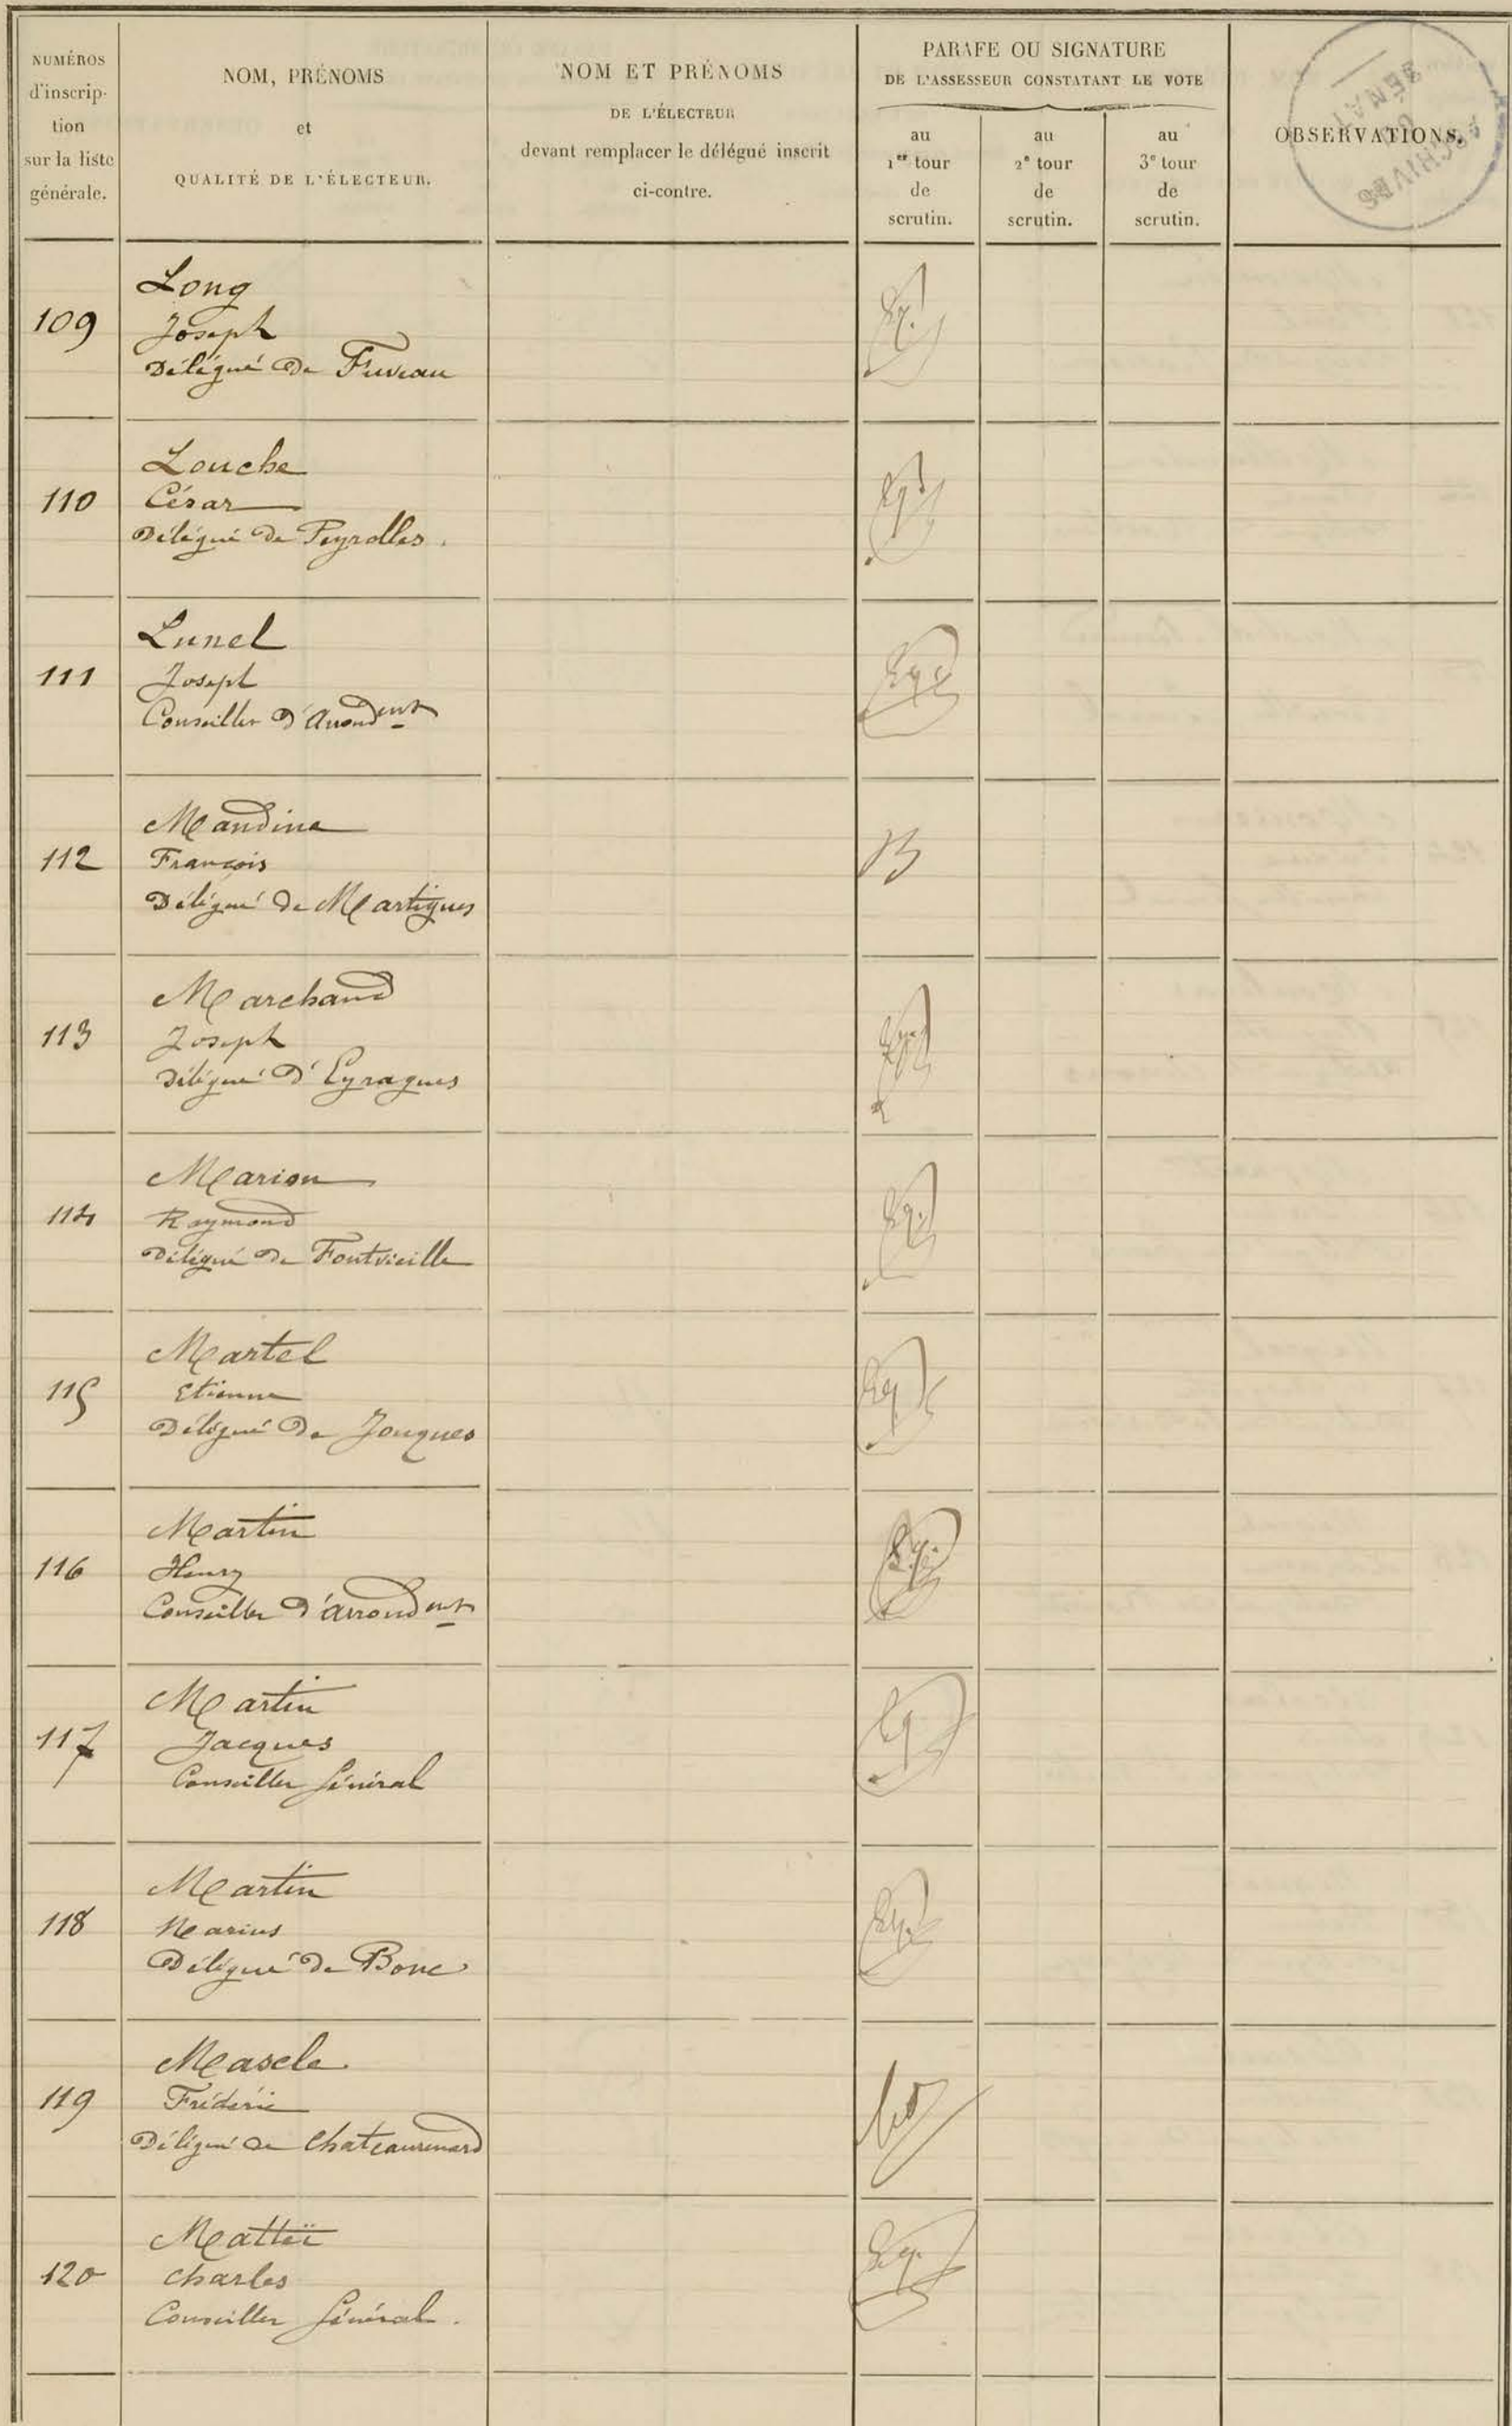 NUMÉROS
d'inscrip-
tion
sur la liste
générale.
NOM, PRÉNOMS
et
QUALITÉ DE L'ÉLECTEUR.
NOM ET PRÉNOMS
DE L'ÉLECTEUR
devant remplacer le délégué inscrit
ci-contre.
PARAFE OU SIGNATURE
DE L'ASSESSEUR CONSTATANT LE VOTE
au
1er tour
de
scrutin.
au
2e tour
de
scrutin.
au
3e tour
de
scrutin.
OBSERVATIONS.
SÉNAT
ARCHIVES
109
Long
Joseph
Délégué de Fuveau
110
Louche
César
Délégué de Peyrolles.
111
Lunel
Joseph
Conseiller d'Arrondent
112
Mandine
François
Délégué de Martigues
113
Marchand
Joseph
Délégué d'Eyragues
114
Marion
Raymond
Délégué de Fontvieille
115
Martel
Etienne
Délégué de Jouques
116
Martin
Henry
Conseiller d'arrondent
117
Martin
Jacques
Conseiller Général
118
Martin
Marius
Délégué de Bouc
119
Mascle
Frédéric
Délégué de Chateaurenard
120
Matteï
Charles
Conseiller Général.